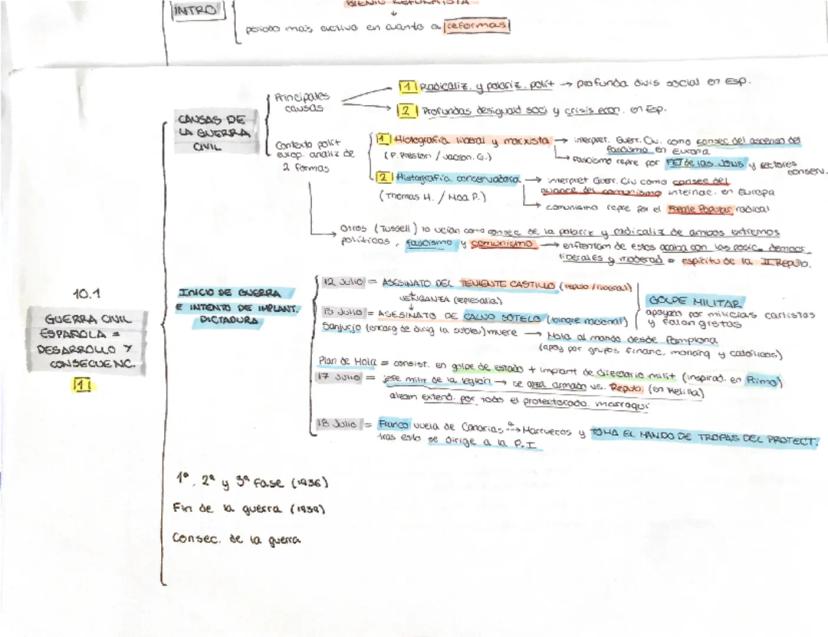 BIENIO REFORMISTA
INTRO
periodo más activo en cuanto a reformas
CAUSAS DE
LA GUERRA
CIVIL
Principales
causas
1 Radicaliz. y polariz. polít → profunda divis social en Esp.
2 Profundas desiguald soci y crisis econ. en Esp.
Contexto polít
europ. analiz de
2 formas
1 Historiografía liberal y marxista → interpret. Guerr. Civ como consec del ascenso del
fascismo en Europa
(P. Preston / Jackson. G.)
→ fascismo repre por FET de las JONS y sectores
conserv.
2 Historiografía conservadora → interpret Guerr. Civ como consec del
avance del comunismo internac. en Europa
(Thomas H. / Moa P.)
→ comunismo repre por el Frente Popular radical
Otros (Tussell) lo veían como consec de la polariz y radicaliz de ambos extremos
políticos, fascismo y comunismo → enfrentam de estos acaba con las posic. democr.
liberales y moderad = espíritu de la II Repúb.
10.1
GUERRA CIVIL
ESPAÑOLA =
DESARROLLO Y
CONSECUENC.
1
INICIO DE GUERRA
E INTENTO DE IMPLANT.
DICTADURA
12 Julio = ASESINATO DEL TENIENTE CASTILLO
VENGANZA (represalia)
13 Julio = ASESINATO DE CALVO SOTELO (hombre nacional)
GOLPE MILITAR
apoyado por milicias carlistas
y falangistas
Sanjurjo (encarg de dirig la sublev) muere → Mola al mando desde Pamplona
(apoy por grupos financ. monárq y católicos)
Plan de Mola = consist. en golpe de estado + implant de directorio milit (inspirad. en Primo)
17 Julio = jefe milit de la legión → se alza armado vs. Repúb (en Melilla)
alzam extend. por todo el protectorado marroquí
18 Julio = Franco vuela de Canarias a → Marruecos y TOMA EL MANDO DE TROPAS DEL PROTECT.
tras esto se dirige a la P.I
1ª, 2ª y 3ª Fase (1936)
Fin de la guerra (1939)
Consec. de la guerra